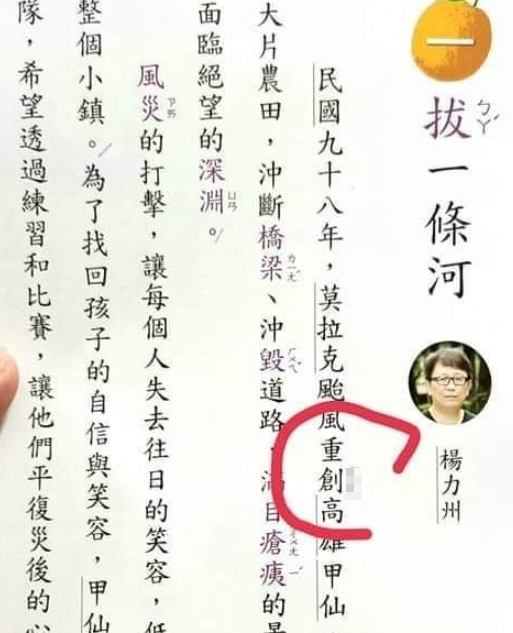 一
拔ㄅㄚˊ一條河
楊力州
民國九十八年，莫拉克颱風重創高雄甲仙，
大片農田，沖斷橋梁ㄌㄧㄤˊ、沖毀ㄏㄨㄟˇ道路，滿目瘡ㄔㄨㄤ痍ㄧˊ的
面臨絕望的深淵ㄩㄢ。
風災ㄗㄞ的打擊，讓每個人失去往日的笑容，低
整個小鎮。為了找回孩子的自信與笑容，甲仙
隊，希望透過練習和比賽，讓他們平復災後的心